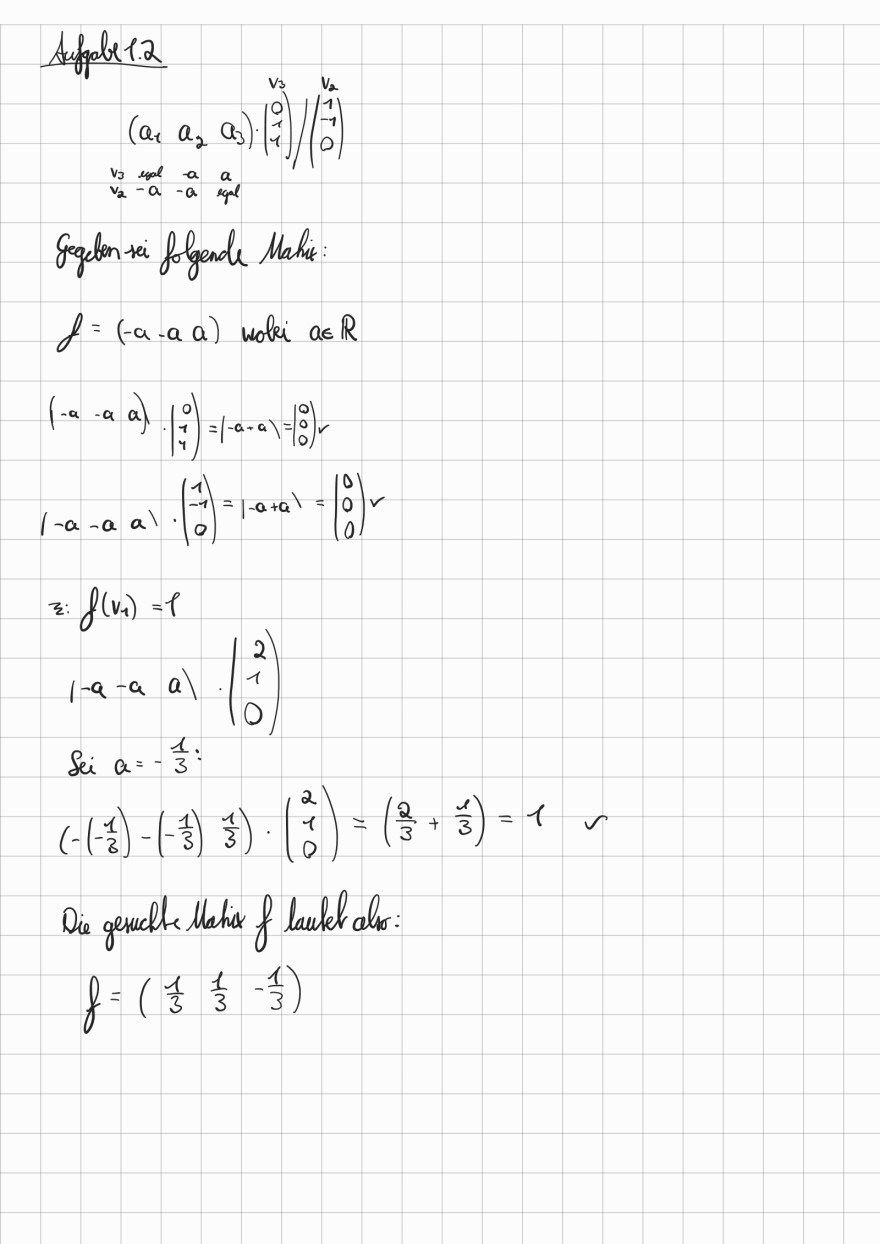 Aufgabe 1.2
v3 v2
(a1 a2 a3) · (0 1 1) / (1 -1 0)
v3 egal -a a
v2 -a -a egal
Gegeben sei folgende Matrix:
f = (-a -a a) wobei a∈ℝ
(-a -a a) · (0 1 1) = (-a+a) = (0 0 0) ✓
(-a -a a) · (1 -1 0) = (-a+a) = (0 0 0) ✓
z: f(v1) = 1
(-a -a a) · (2 1 0)
Sei a = -1/3:
(-(-1/3) -(-1/3) 1/3) · (2 1 0) = (2/3 + 1/3) = 1 ✓
Die gesuchte Matrix f lautet also:
f = (1/3 1/3 -1/3)